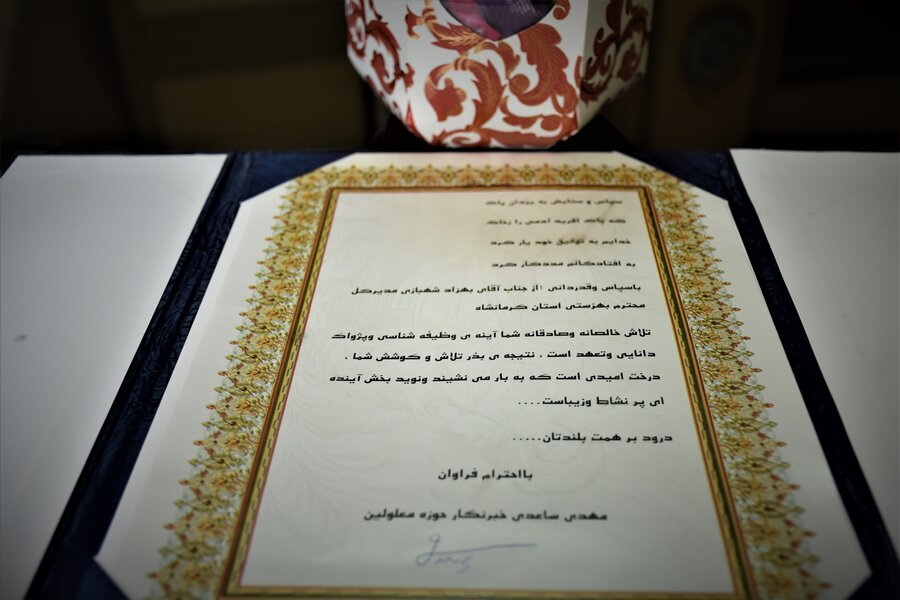 سپاس و ستایش به یزدان پاک
که پاک آفرید آدمی را زخاک
خدایم به توفیق خود یار کرد
به افتادگانم مددکار کرد
باسپاس وقدردانی :از جناب آقای بهزاد شهبازی مدیرکل
محترم بهزستی استان کرمانشاه
تلاش خالصانه وصادقانه شما آینه ی وظیفه شناسی وپژواک
دانایی وتعهد است ، نتیجه ی بذر تلاش و کوشش شما ،
درخت امیدی است که به بار می نشیند ونوید بخش آینده
ای پر نشاط وزیباست....
درود بر همت بلندتان.....
بااحترام فراوان
مهدی ساعدی خبرنگار حوزه معلولین